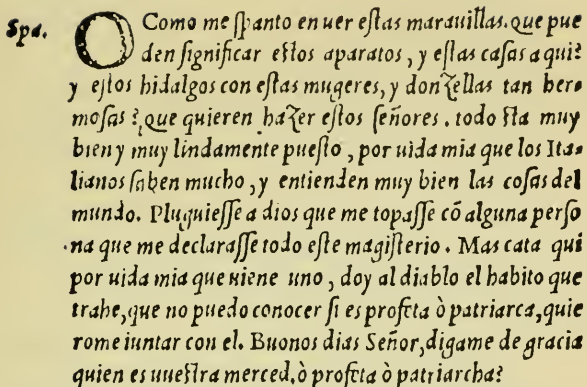 Spa. O Como me spanto en uer estas marauillas. que pue
den significar estos aparatos, y estas casas aqui?
y estos hidalgos con estas mugeres, y donzellas tan her-
mosas? que quieren hazer estos señores. todo sta muy
bien y muy lindamente puesto, por uida mia que los Ita-
lianos saben mucho, y entienden muy bien las cosas del
mundo. Pluguiesse a dios que me topasse cõ alguna perso
na que me declarasse todo este magisterio. Mas cata qui
por uida mia que uiene uno, doy al diablo el habito que
trahe, que no puedo conocer si es profeta ò patriarca, quie
rome iuntar con el. Buonos dias Señor, digame de gracia
quien es uuestra merced, ò profeta ò patriarcha?